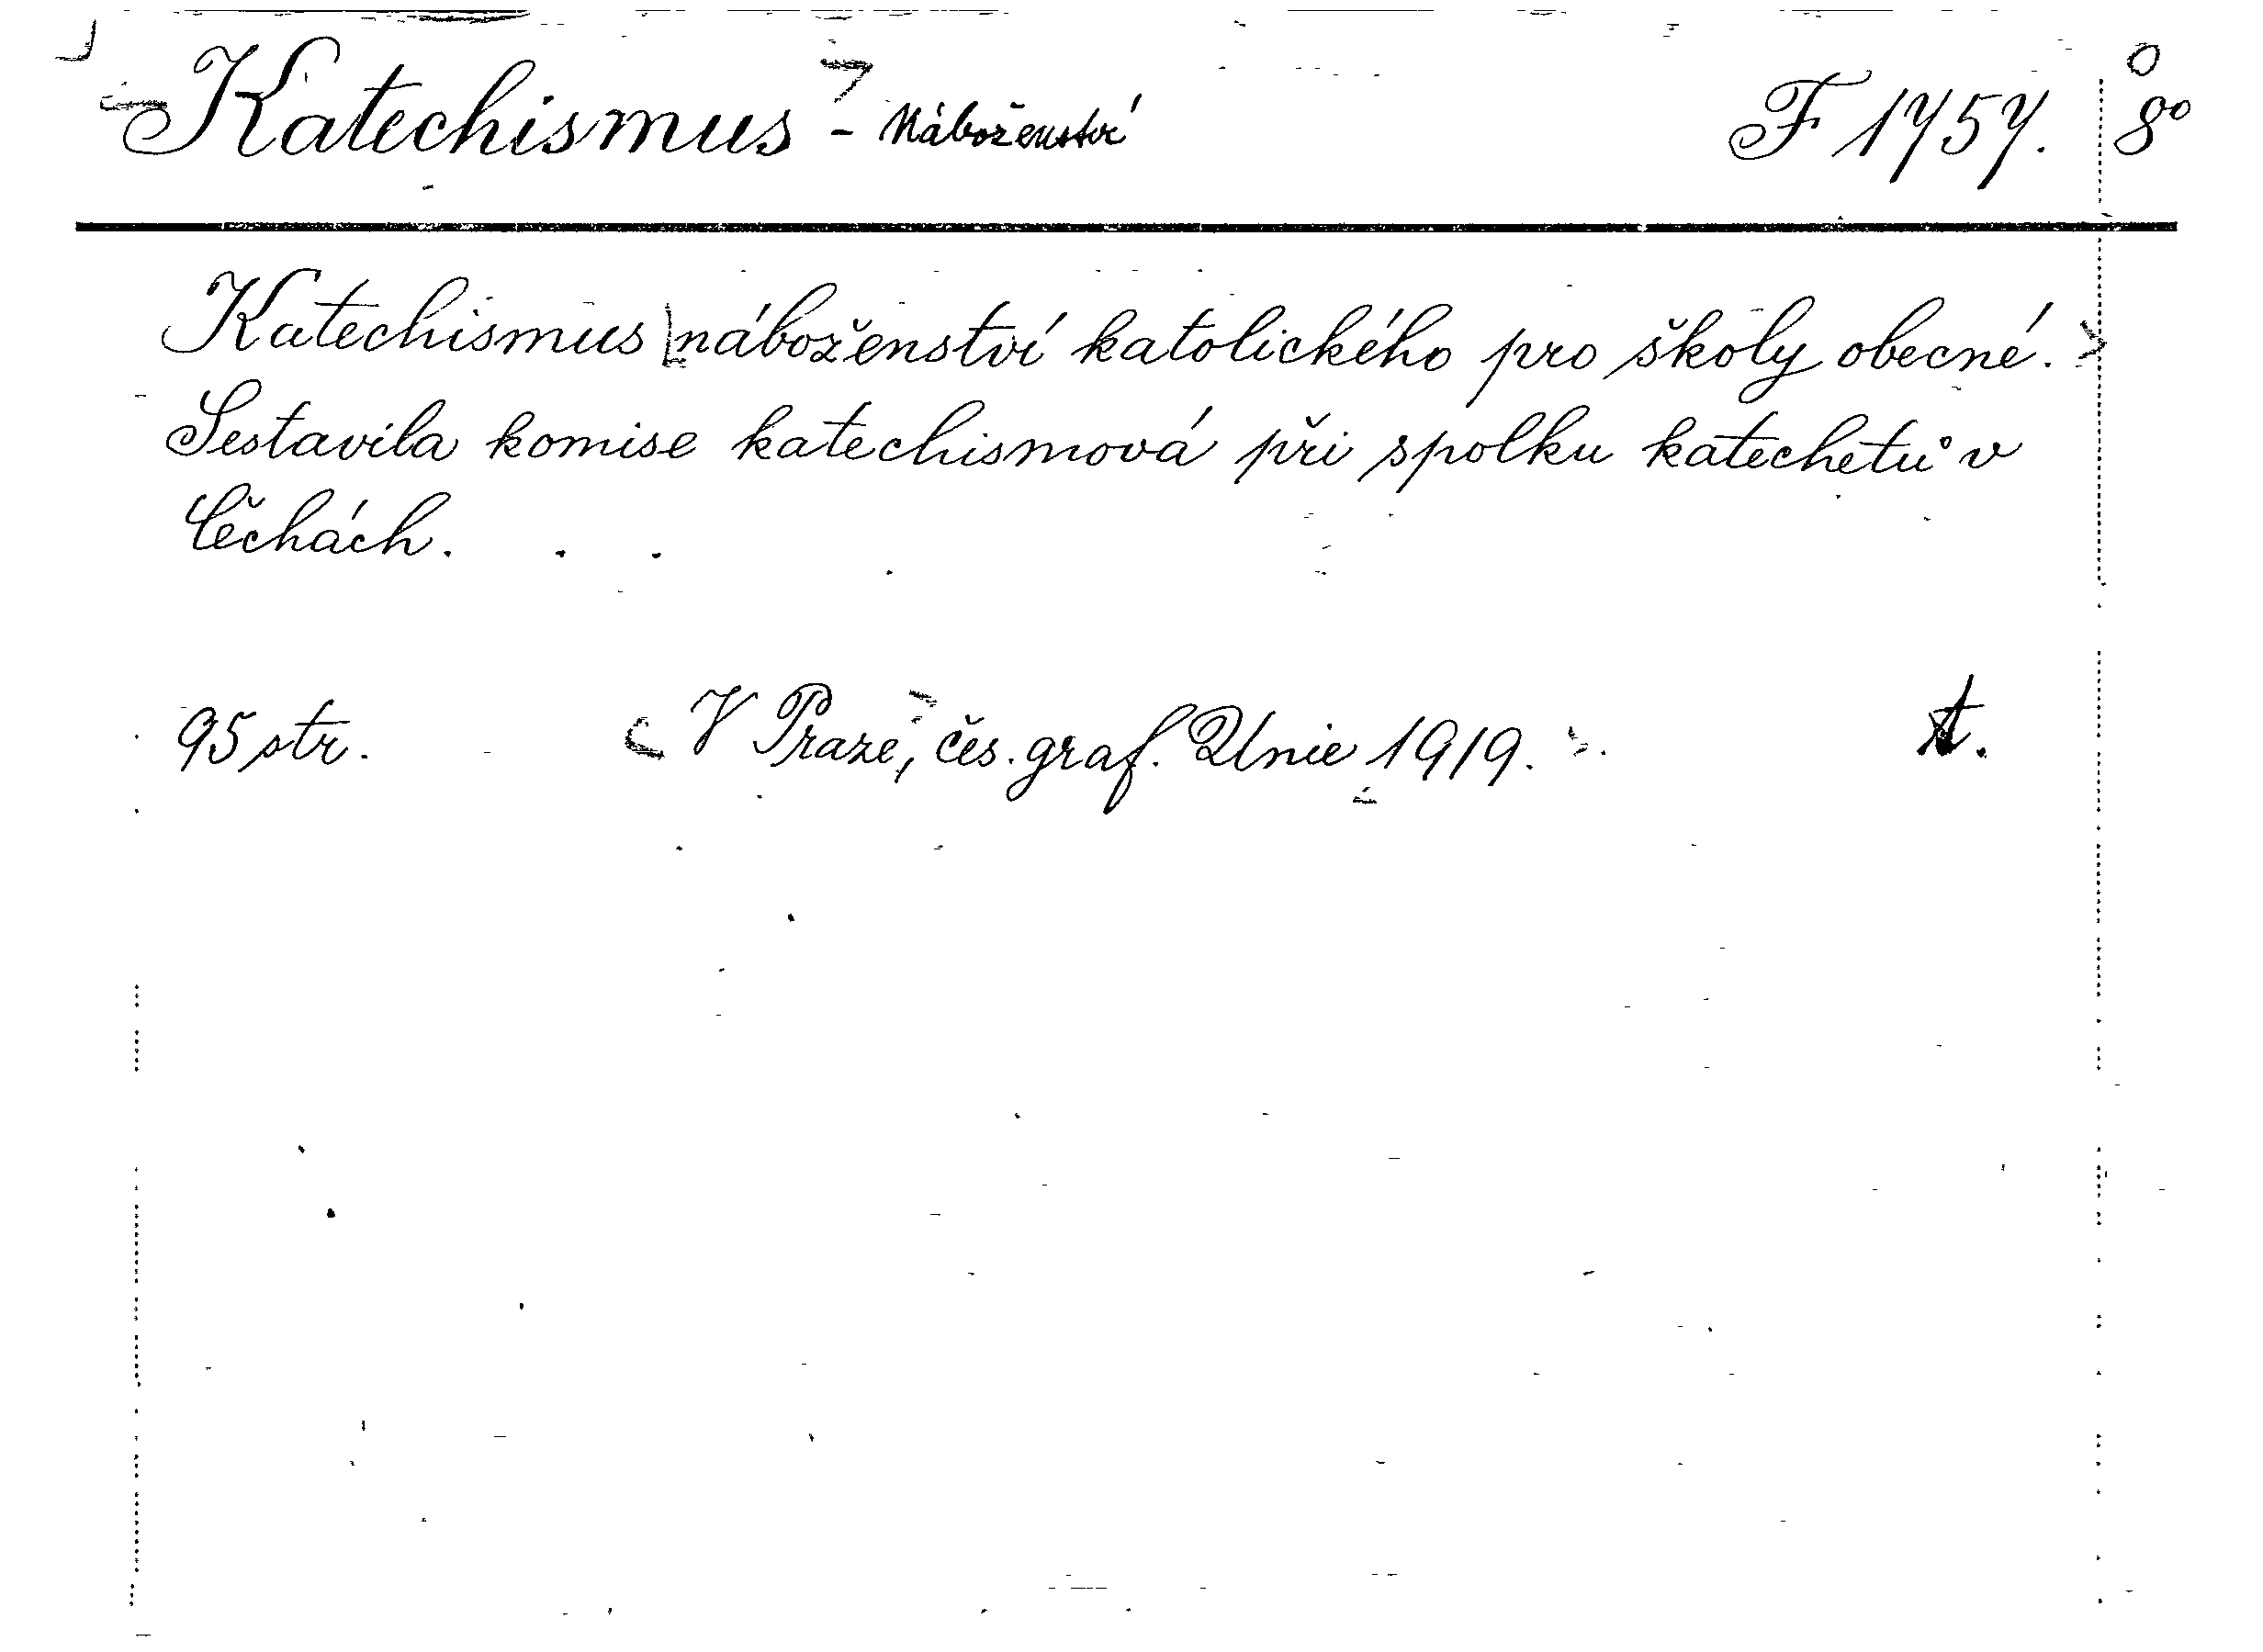 Katechismus - Náboženství F 1757. 8°
Katechismus náboženství katolického pro školy obecné.
Sestavila komise katechismová při spolku katechetů v
Čechách.
95 str. V Praze, čes. graf. Unie 1919.